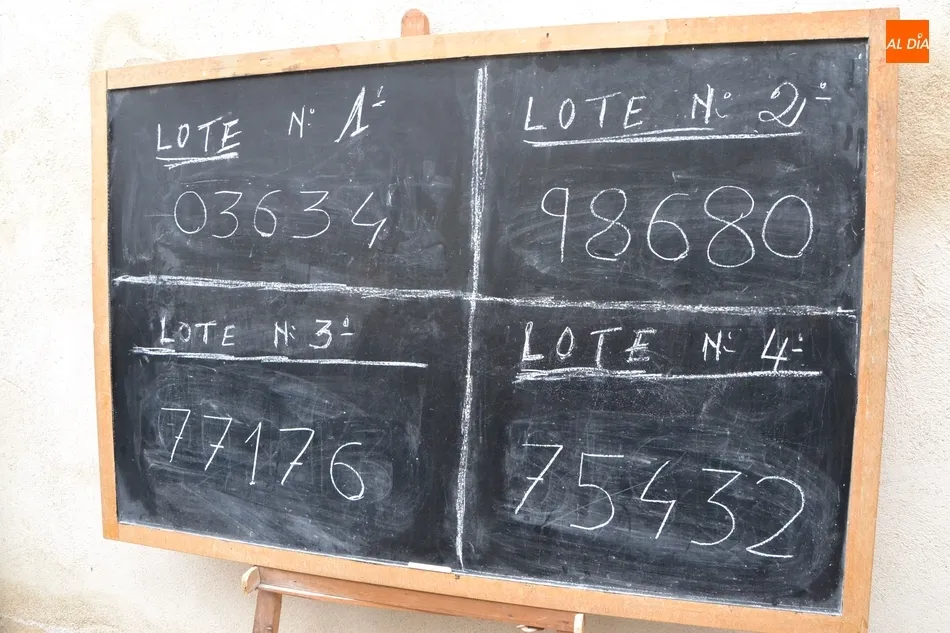 LOTE Nº 1º
03634
LOTE Nº 2º
98680
LOTE Nº 3º
77176
LOTE Nº 4º
75432
AL DÍA